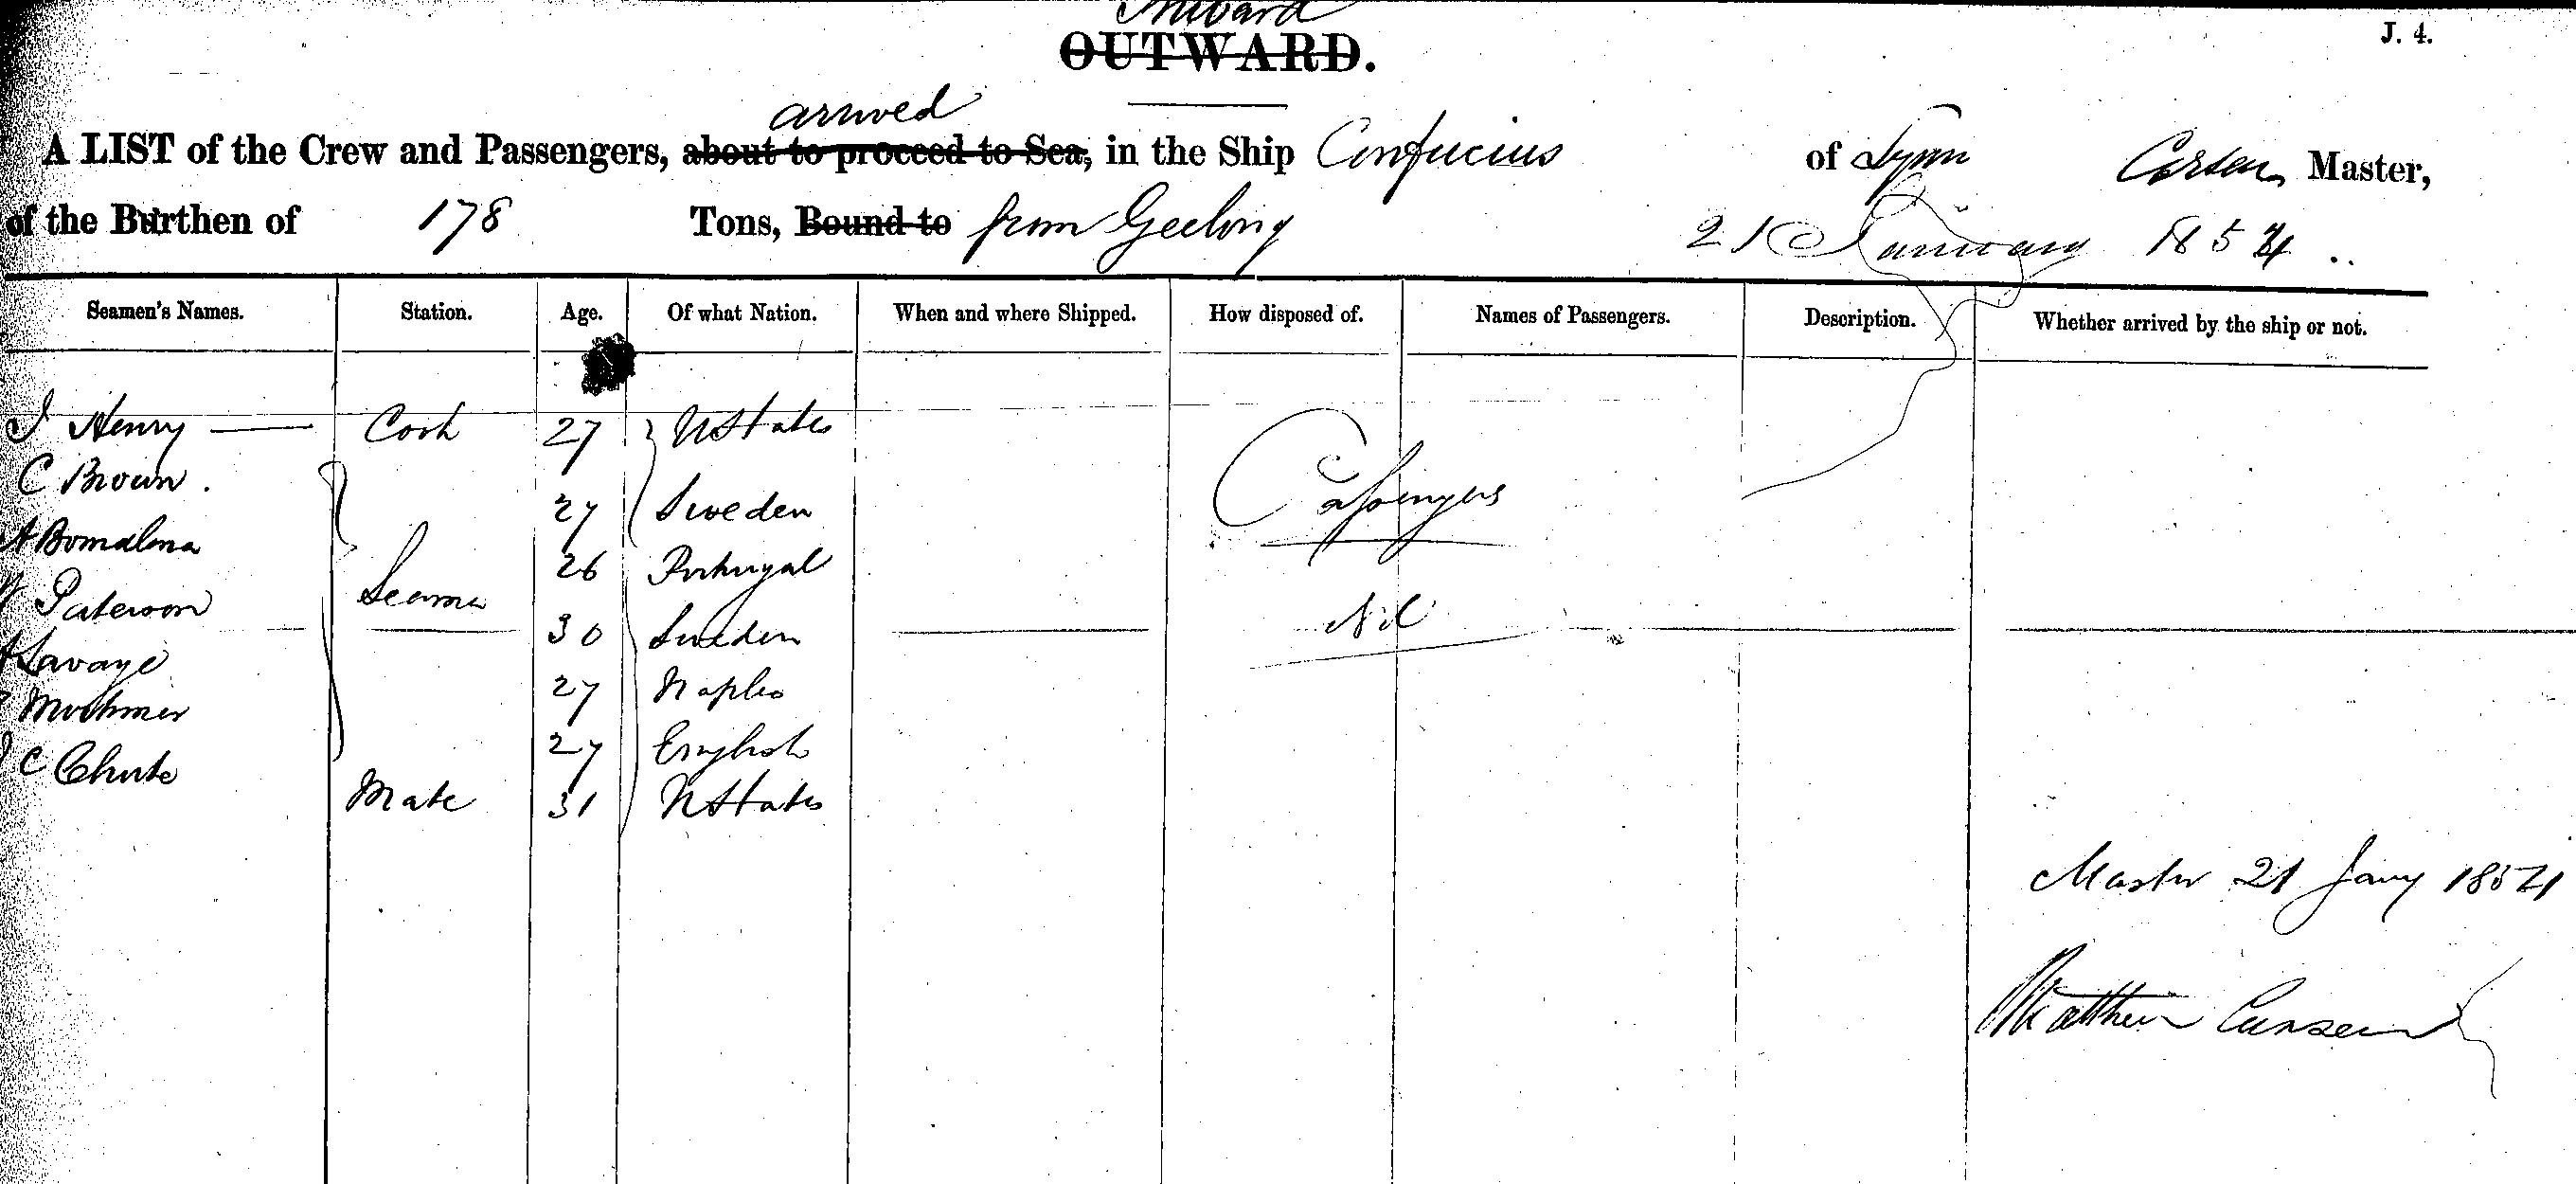 Inward
OUTWARD.
J. 4.
arrived
A LIST of the Crew and Passengers, about to proceed to Sea, in the Ship Confucius of Lynn Carsen Master,
of the Burthen of 178 Tons, Bound to from Geelong 21 January 1854
Seamen's Names. Station. Age. Of what Nation. When and where Shipped. How disposed of. Names of Passengers. Description. Whether arrived by the ship or not.
J Henry Cook 27 U States
C Brown. 27 Sweden
Passengers
A 26 Portugal
Paterson Seamen 30 Sweden
Nil
Savage 27 Naples
Mortimer 27 English
C Chute Mate 31 U States
Master 21 Jany 1854
Matthew